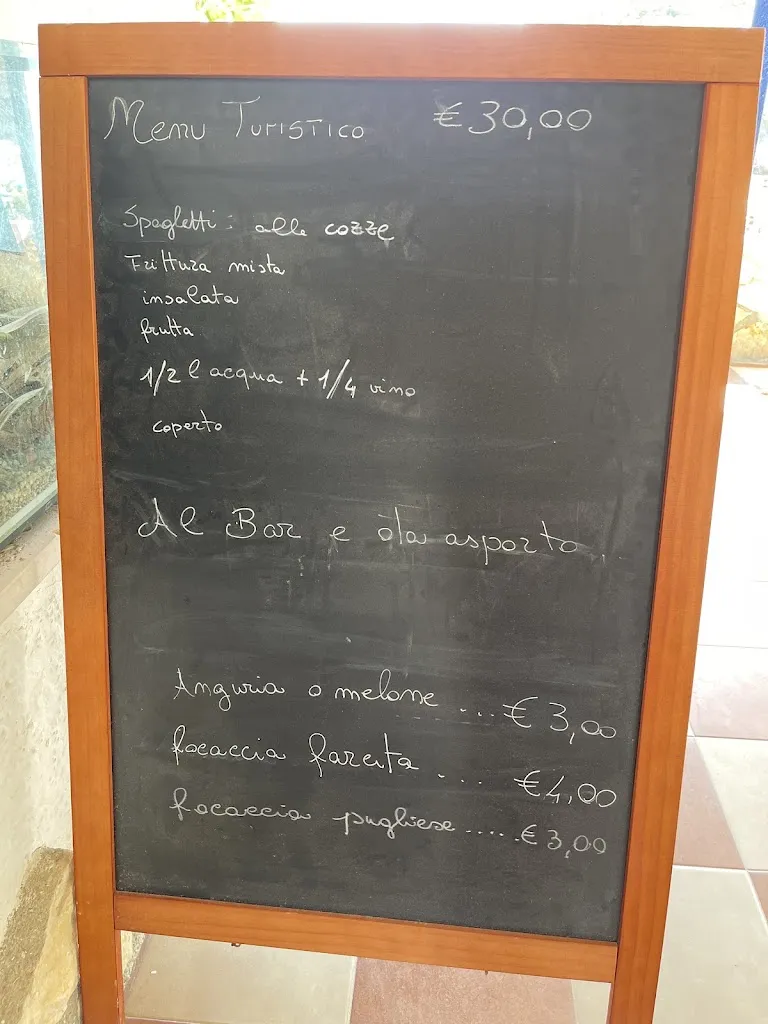 Menu Turistico €30,00
Spaghetti: alle cozze
Frittura mista
insalata
frutta
1/2 l acqua + 1/4 vino
coperto
Al Bar e da asporto..
Anguria o melone ... € 3,00
focaccia farcita .... €4,00
focaccia pugliese ..... € 3,00